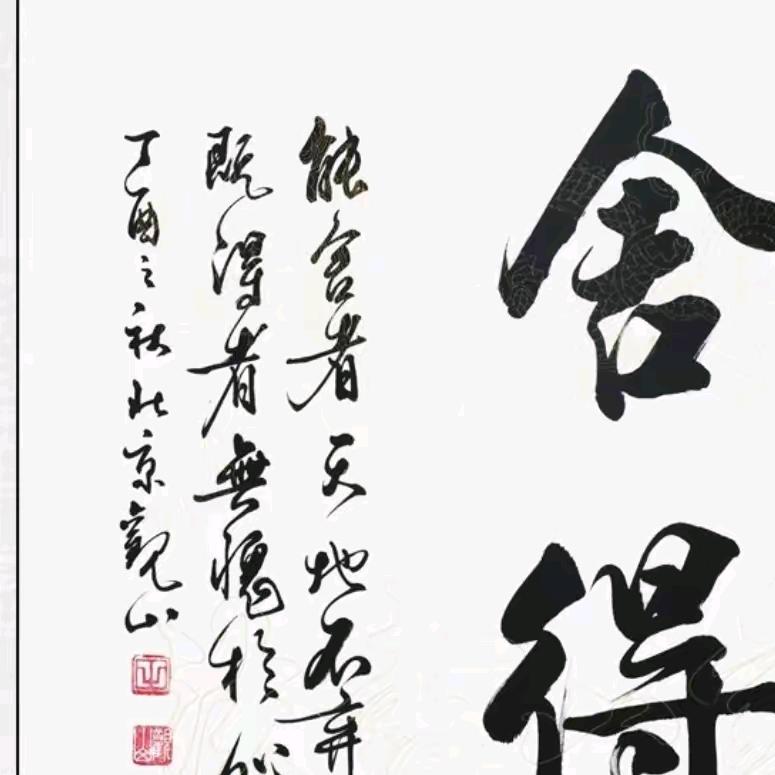 舍得
能舍者天地不弃
既得者無愧於
丁酉之秋北京觀山